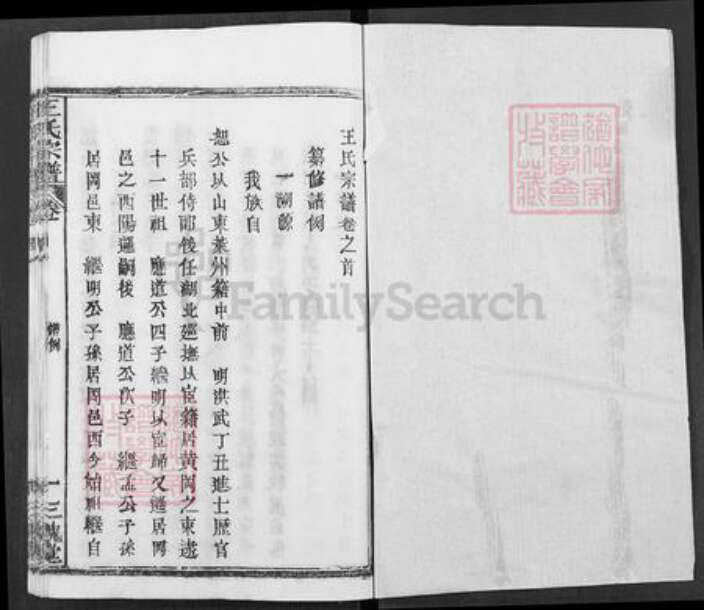 王氏宗譜卷之首
纂修譜例
一溯源
我族自
恕公以山東萊州籍中前 明洪武丁丑進士歷官
兵部侍郎後任湖北巡撫以宦籍居黃岡之東逮
十一世祖 應道公四子 繼明以宦歸又遷居岡
邑之西陽邏嗣後 應道公次子 繼孟公子孫
居岡邑東 繼明公子孫居岡邑西今始祖 自
王氏宗譜 卷
譜例
一 三槐堂
FamilySearch